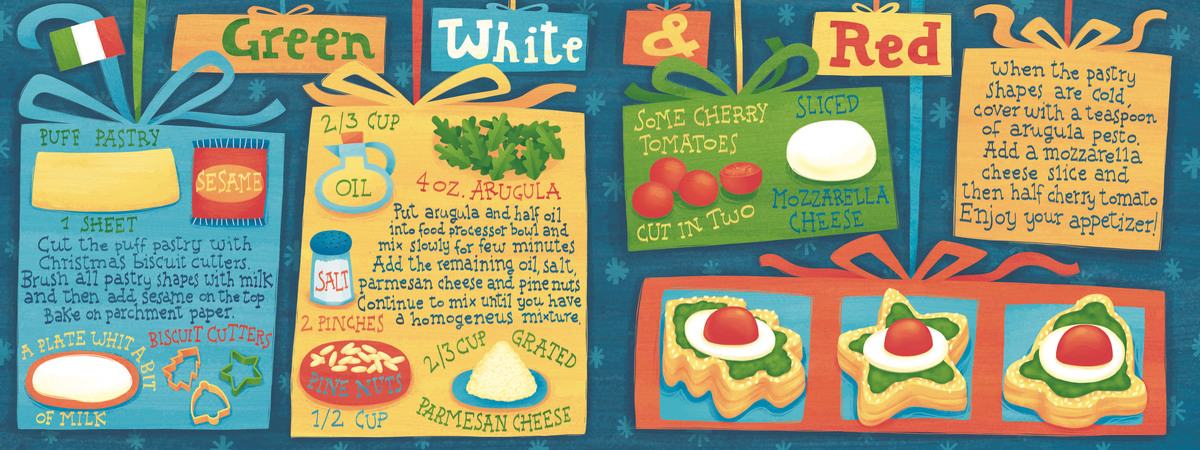 Green White & Red
PUFF PASTRY
SESAME
1 SHEET
Cut the puff pastry with
Christmas biscuit cutters.
Brush all pastry shapes with milk
and then add sesame on the top
Bake on parchment paper.
A PLATE WHIT A BIT
OF MILK
BISCUIT CUTTERS
2/3 CUP
OIL
4 OZ. ARUGULA
Put arugula and half oil
into food processor bowl and
mix slowly for few minutes
Add the remaining oil, salt,
parmesan cheese and pine nuts
Continue to mix until you have
a homogeneus mixture.
SALT
2 PINCHES
PINE NUTS
1/2 CUP
2/3 CUP GRATED
PARMESAN CHEESE
SOME CHERRY
TOMATOES
CUT IN TWO
SLICED
MOZZARELLA
CHEESE
When the pastry
shapes are cold,
cover with a teaspoon
of arugula pesto.
Add a mozzarella
cheese slice and
then half cherry tomato
Enjoy your appetizer!